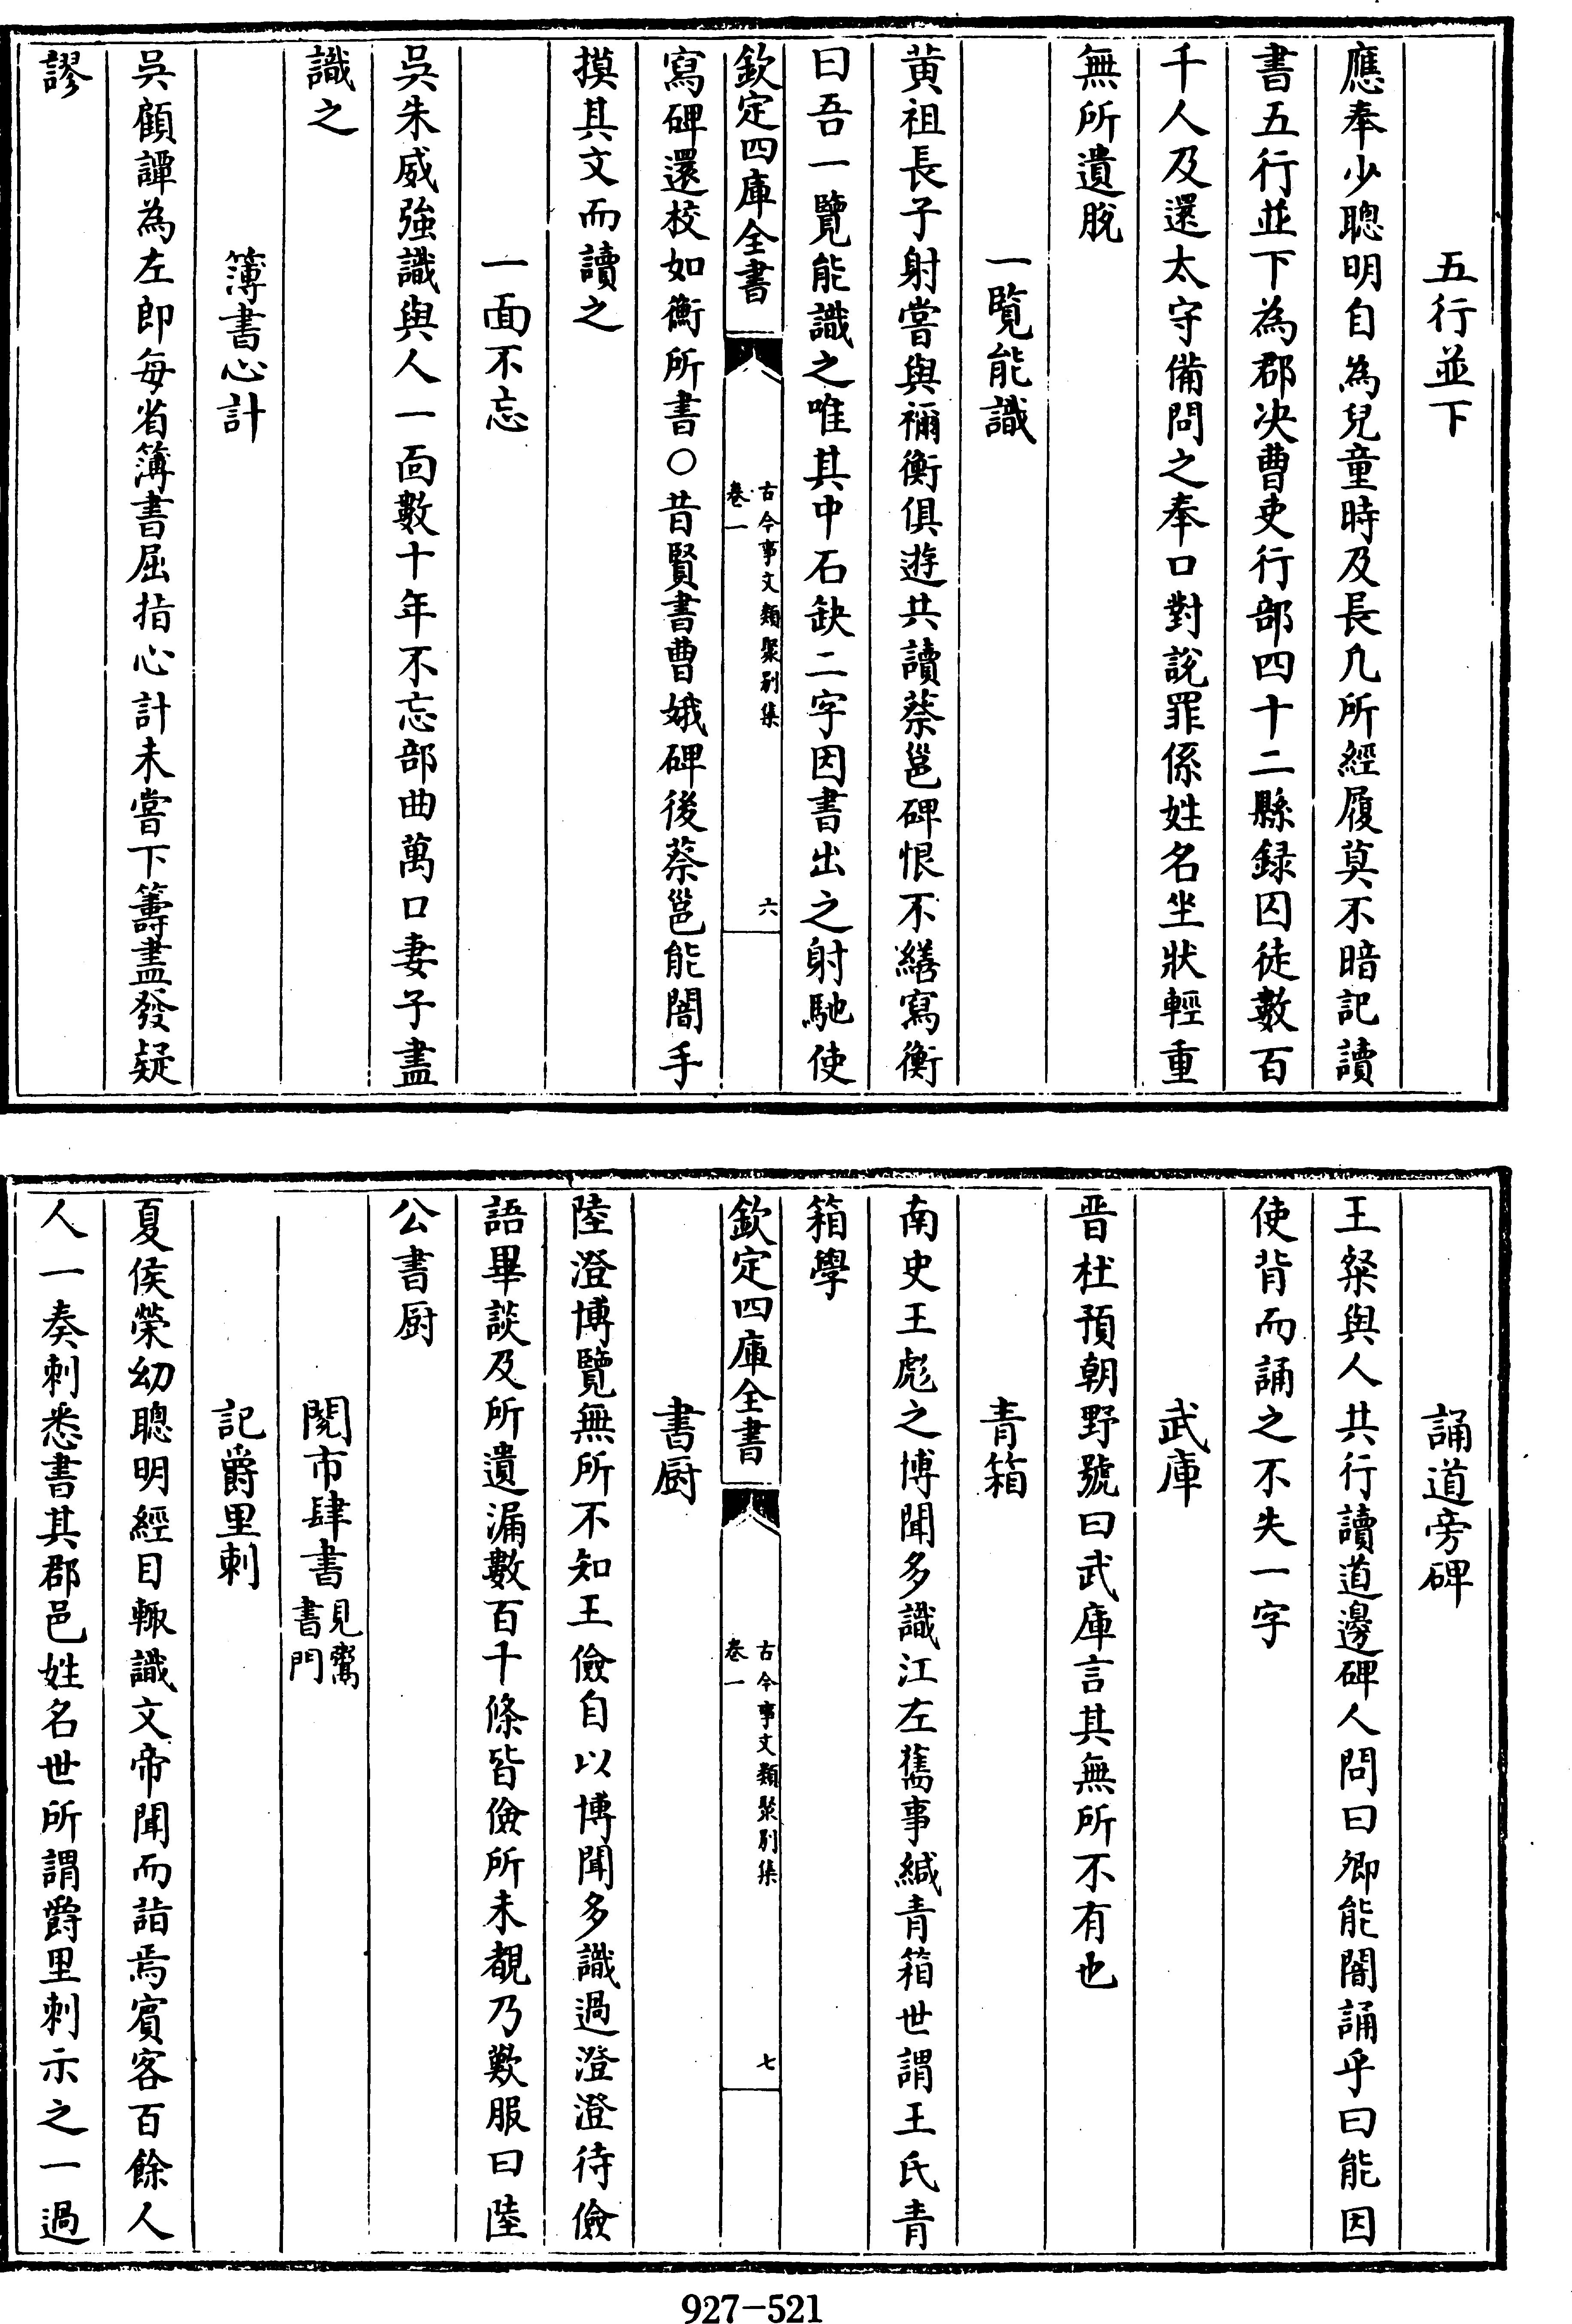 五行並下
應奉少聰明自為兒童時及長凡所經履莫不暗記讀
書五行並下為郡决曹吏行部四十二縣録囚徒數百
千人及還太守備問之奉口對說罪係姓名坐狀輕重
無所遺脫
一覽能識
黄祖長子射嘗與禰衡俱遊共讀蔡邕碑恨不繕寫衡
曰吾一覽能識之唯其中石缺二字因書出之射馳使
欽定四庫全書
古今事文類聚別集
卷一
六
寫碑還校如衡所書○昔賢書曹娥碑後蔡邕能闇手
摸其文而讀之
一面不忘
吳朱威強識與人一面數十年不忘部曲萬口妻子盡
識之
簿書心計
吳顧譚為左郎每省簿書屈指心計未嘗下籌盡發疑
謬
誦道旁碑
王粲與人共行讀道邊碑人問曰卿能闇誦乎曰能因
使背而誦之不失一字
武庫
晋杜預朝野號曰武庫言其無所不有也
青箱
南史王彪之博聞多識江左舊事緘青箱世謂王氏青
箱學
欽定四庫全書
古今事文類聚別集
卷一
七
書厨
陸澄博覽無所不知王儉自以博聞多識過澄澄待儉
語畢談及所遺漏數百千條皆儉所未覩乃歎服曰陸
公書厨
閱市肆書見鬻
書門
記爵里刺
夏侯榮幼聰明經目輙識文帝聞而詣焉賓客百餘人
人一奏刺悉書其郡邑姓名世所謂爵里刺示之一過
927-521